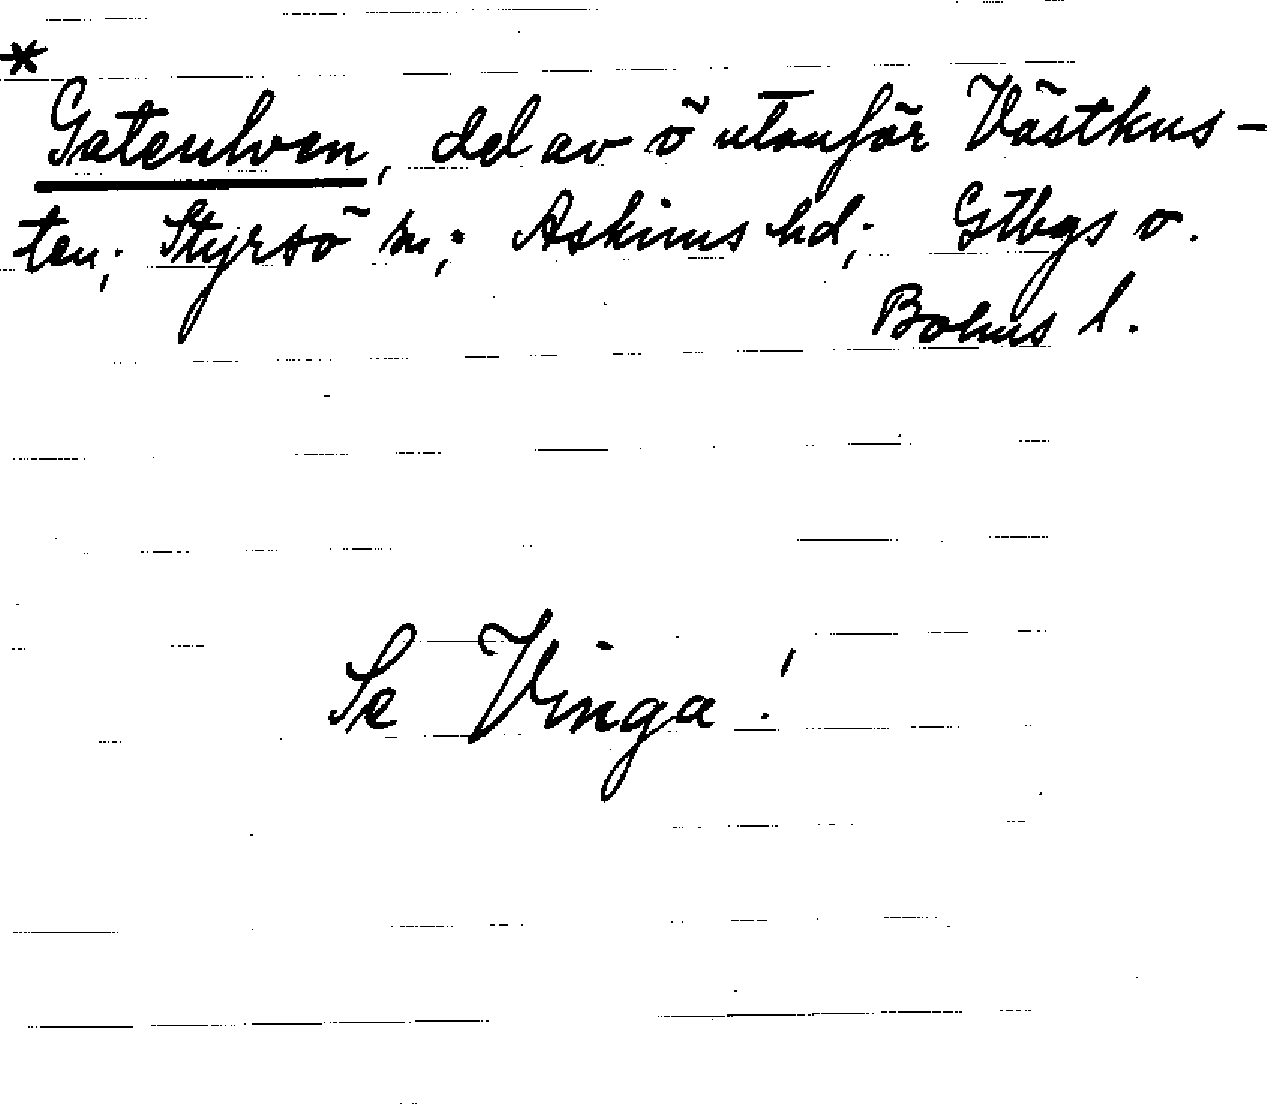 *
Gateulven, del av ö utanför Västkus-
ten; Styrsö sn; Askims hd; Gtbgs o.
Bohus l.
Se Vinga!